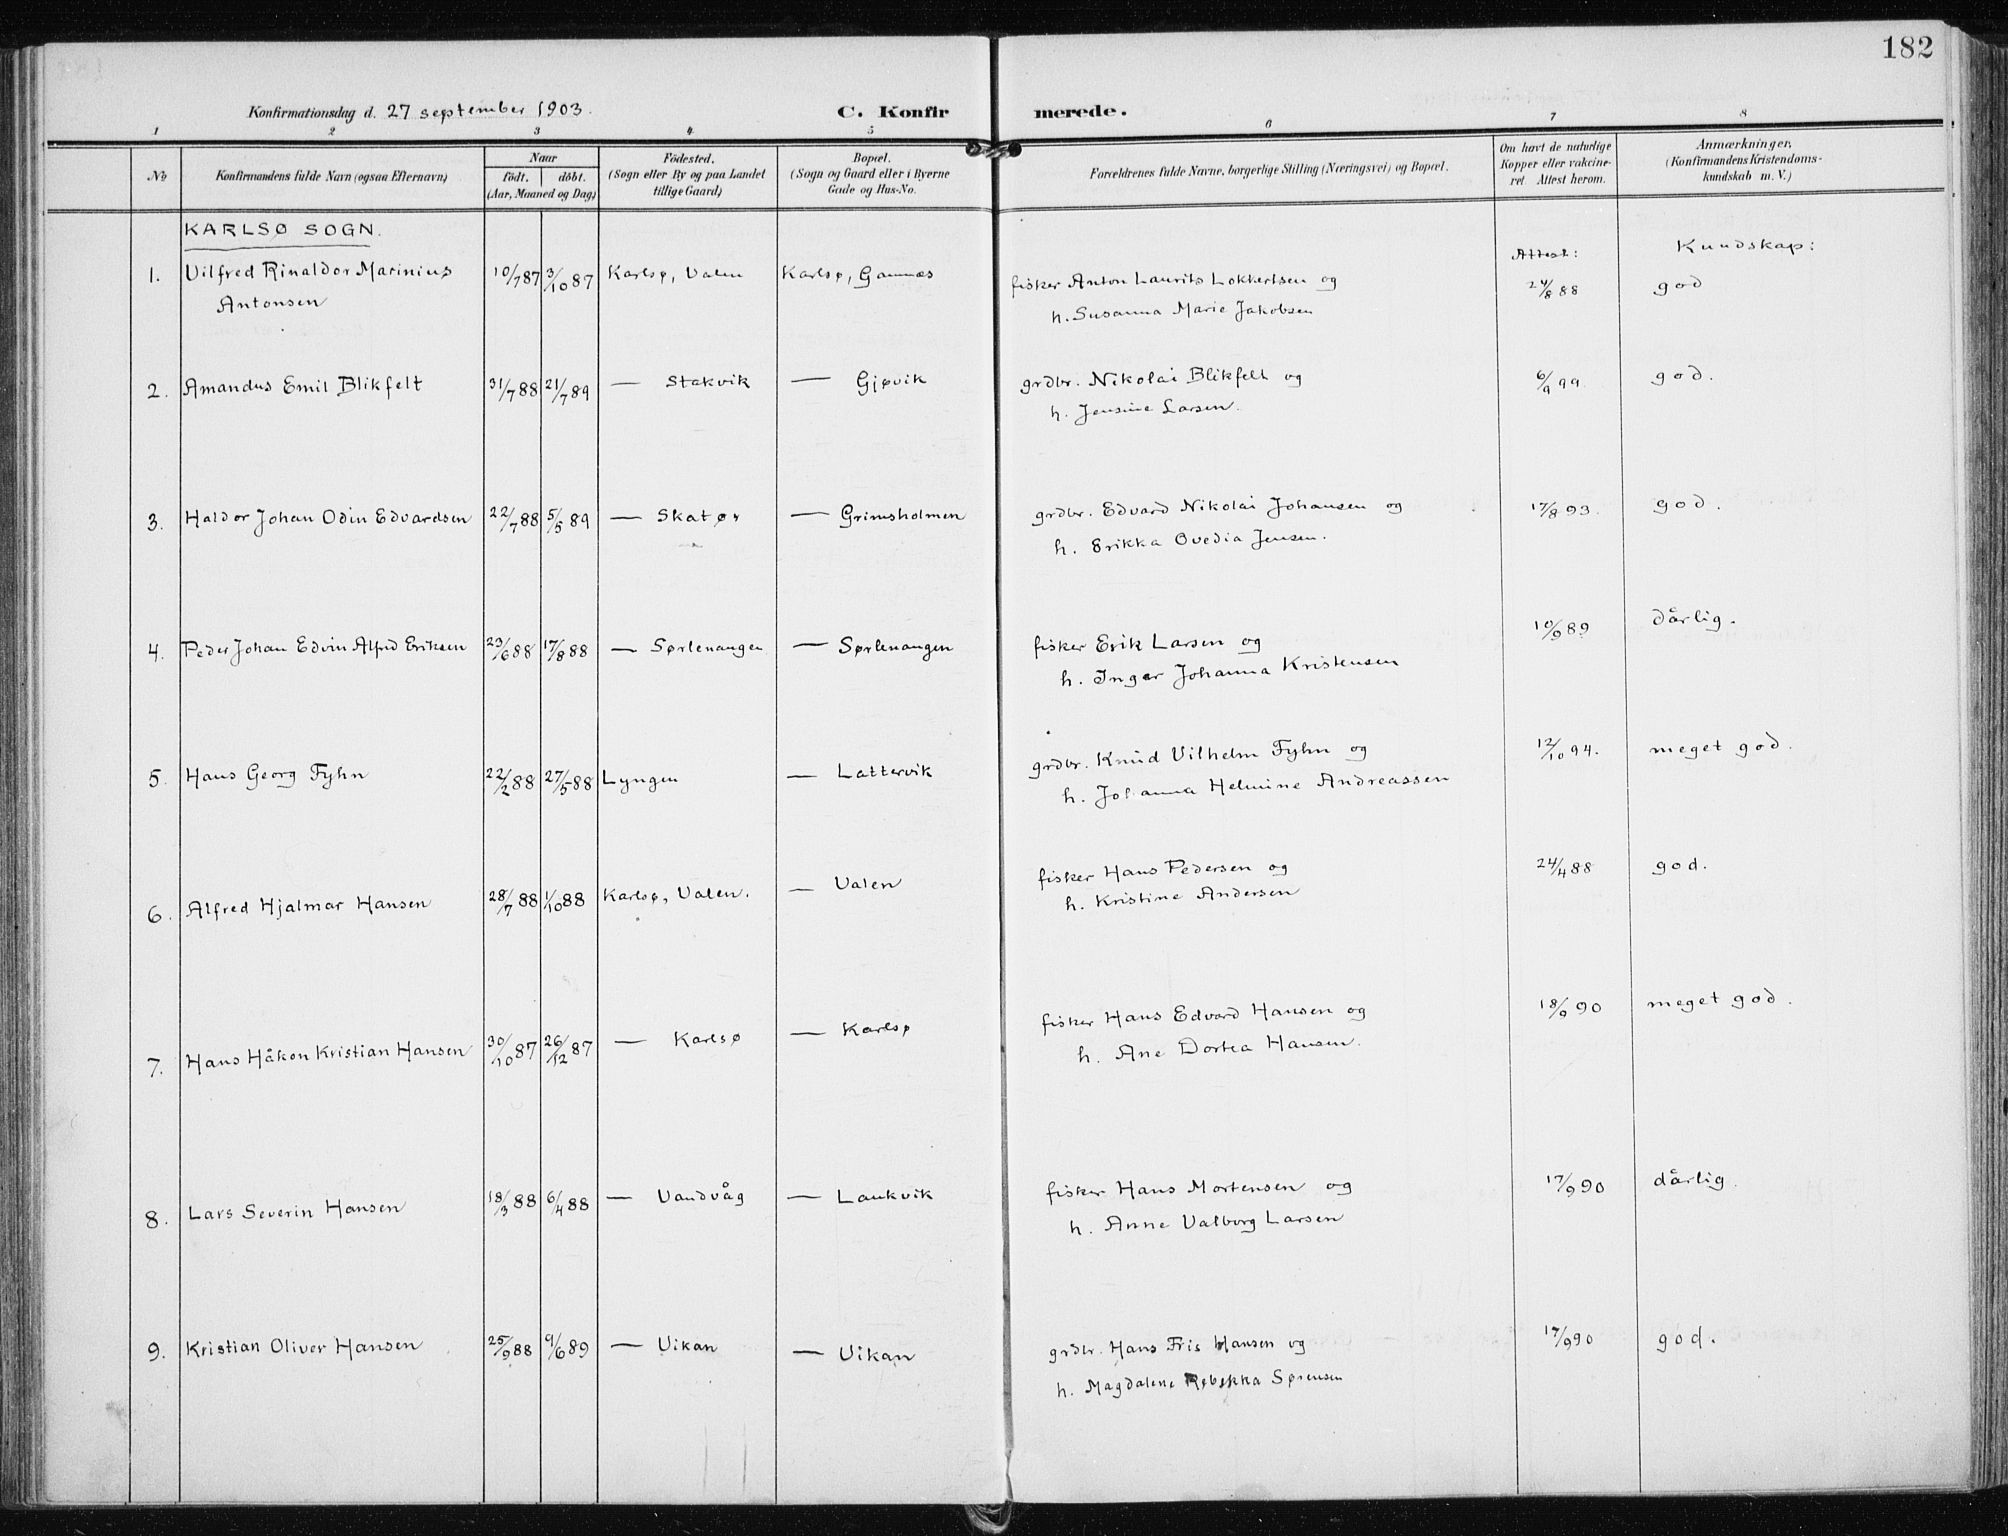 182
Konfirmationsdag d. 27 september 1903. C. Konfirmerede.
1 2 3 4 5 6 7 8
No Konfirmandens fulde Navn (ogsaa Efternavn) Naar født. døbt. (Aar, Maaned og Dag) Fødested. (Sogn eller By og paa Landet tillige Gaard) Bopæl. (Sogn og Gaard eller i Byerne Gade og Hus-No. Forældrenes fulde Navne, borgerlige Stilling (Næringsvei) og Bopæl. Om havt de naturlige Kopper eller vakcineret. Attest herom. Anmærkninger. (Konfirmandens Kristendomskundskab m. V.)
KARLSØ SOGN.
Attest: Kundskap:
1. Vilfred Rinaldor Marinius 10/7 87 3/10 87 Karlsø, Valen Karlsø, Gamnæs fisker Anton Laurits Lokkertsen og 24/8 88 god
Antonsen h. Susanna Marie Jakobsen
2. Amandus Emil Blikfelt 31/7 88 21/7 89 — Stakvik — Gjøvik grdbr. Nikolai Blikfelt og 6/9 99. god.
h. Jensine Larsen.
3. Haldor Johan Odin Edvardsen 22/7 88 5/5 89 — Skatør — Grimsholmen grdbr. Edvard Nikolai Johansen og 17/8 93. god.
h. Erikka Ovedia Jensen.
4. Peder Johan Edvin Alfred Eriksen 23/6 88 17/8 88 — Sørlenangen — Sørlenangen fisker Erik Larsen og 10/9 89 dårlig.
h. Inger Johanna Kristensen
5. Hans Georg Fyhn 22/2 88 27/5 88 Lyngen — Lattervik grdbr. Knud Vilhelm Fyhn og 12/10 94. meget god.
h. Johanna Helmine Andreassen
6. Alfred Hjalmar Hansen 28/7 88 1/10 88 Karlsø, Valen. — Valen fisker Hans Pedersen og 24/4 88 god.
h. Kristine Andersen
7. Hans Håkon Kristian Hansen 30/10 87 26/12 87 — Karlsø — Karlsø fisker Hans Edvard Hansen og 18/9 90 meget god.
h. Ane Dortea Hansen.
8. Lars Severin Hansen 18/3 88 6/4 88 — Vandvåg — Laukvik fisker Hans Mortensen og 17/9 90 dårlig.
h. Anne Valborg Larsen
9. Kristian Oliver Hansen 25/9 88 9/6 89 — Vikan — Vikan grdbr. Hans Fris Hansen og 17/9 90 god.
h. Magdalene Rebekka Sørensen